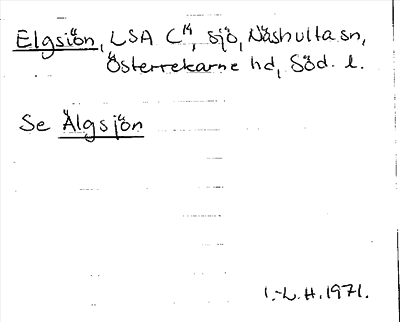 Elgsiön, LSA C14, sjö, Näshulta sn,
Österrekarne hd, Söd. l.
Se Älgsjön
I.-L. H. 1971.